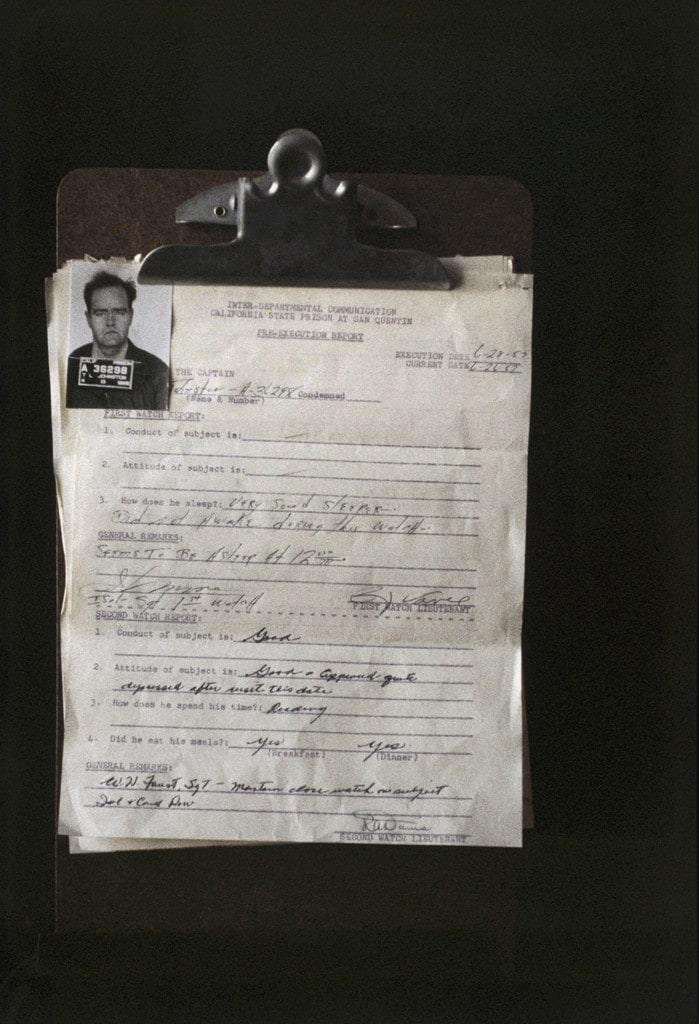 INTER-DEPARTMENTAL COMMUNICATION
CALIFORNIA STATE PRISON AT SAN QUENTIN
PRE-EXECUTION REPORT
EXECUTION DATE 6-28-57
CURRENT DATE
THE CAPTAIN
A-36298 Condemned
(Name & Number)
CALIF PRISON
A 36298
JOHNSTON
FIRST WATCH REPORT:
1. Conduct of subject is:
2. Attitude of subject is:
3. How does he sleep?: Very Sound Sleeper.
Did not Awake during this Watch.
GENERAL REMARKS:
Seems To Be Asleep At 12
Sgt 1st Watch
FIRST WATCH LIEUTENANT
SECOND WATCH REPORT:
1. Conduct of subject is: Good
2. Attitude of subject is: Good - appeared quite
depressed after visit this date
3. How does he spend his time?: Reading
4. Did he eat his meals?: yes yes
(Breakfast) (Dinner)
GENERAL REMARKS:
W.H. Faust, Sgt - Maintain close watch on subject
Row
SECOND WATCH LIEUTENANT